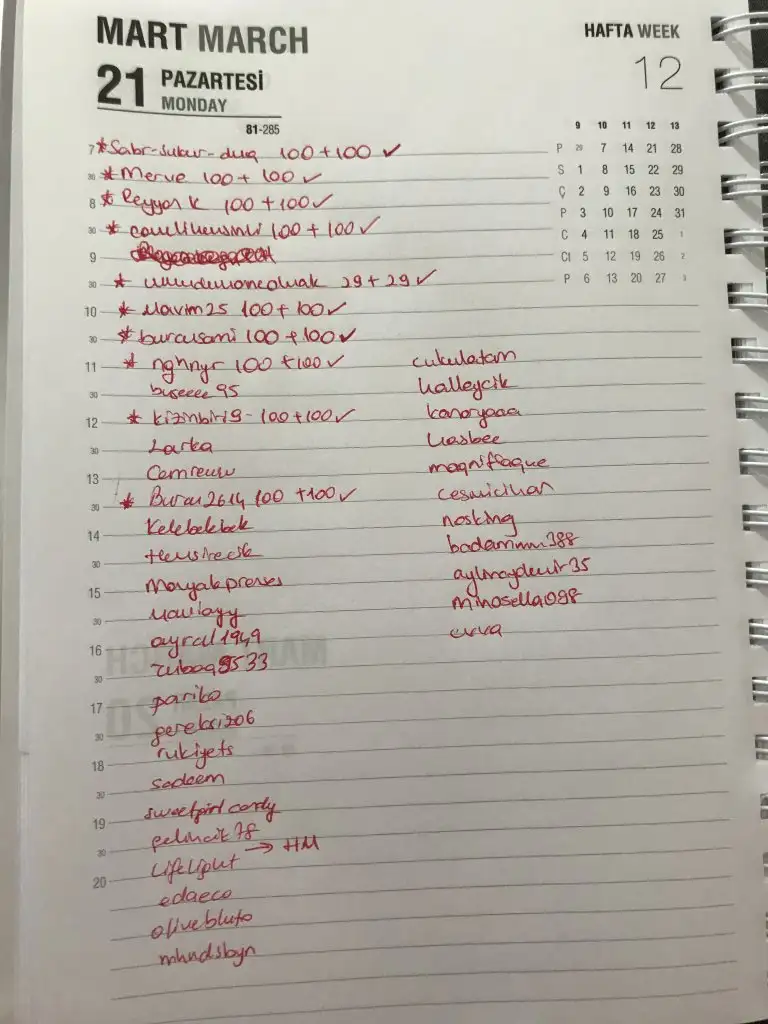 MART MARCH
21 PAZARTESİ
MONDAY
81-285
HAFTA WEEK
12
9 10 11 12 13
P 29 7 14 21 28
S 1 8 15 22 29
Ç 2 9 16 23 30
P 3 10 17 24 31
C 4 11 18 25 1
Ct 5 12 19 26 2
P 6 13 20 27 3
7 * Sabr-sukur-dua 100+100 ✓
30 * Merve 100+100 ✓
8 * Reyyan k 100+100 ✓
30 * 100+100 ✓
9
30 * 29+29 ✓
10 * Mavim25 100+100 ✓
30 * burcusami 100+100 ✓
11 * nghnyr 100+100 ✓
30 buseeee95
12 * 100+100 ✓
30 Larka
13 Cemreww
30 * Burcu2614 100+100 ✓
14 Kelebekbek
30
15 Manyakprenses
30
16 ayral1949
30
17 pariko
30
18 rukiyets
30 sadeem
19 sweetgirl candy
30 pelincik78
Lifelight → HM
20
edaeco
olivebluto
mhndsbyn
cukulatam
halleycik
kanaryaaa
hasbee
magnifiaque
cesmicihan
nosking
badammm388
aylinaydemir35
minosella088
evva